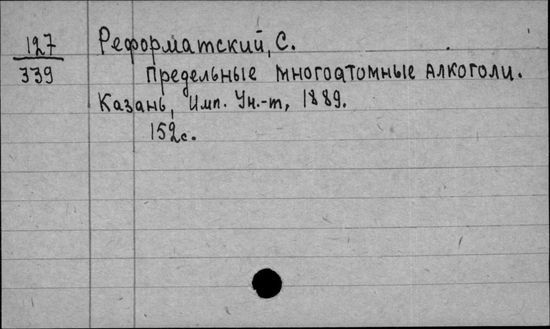 127
339
Реформатский, С.
Предельные многоатомные алкоголи.
Казань, Имп. Ун.-т, 1889.
152с.